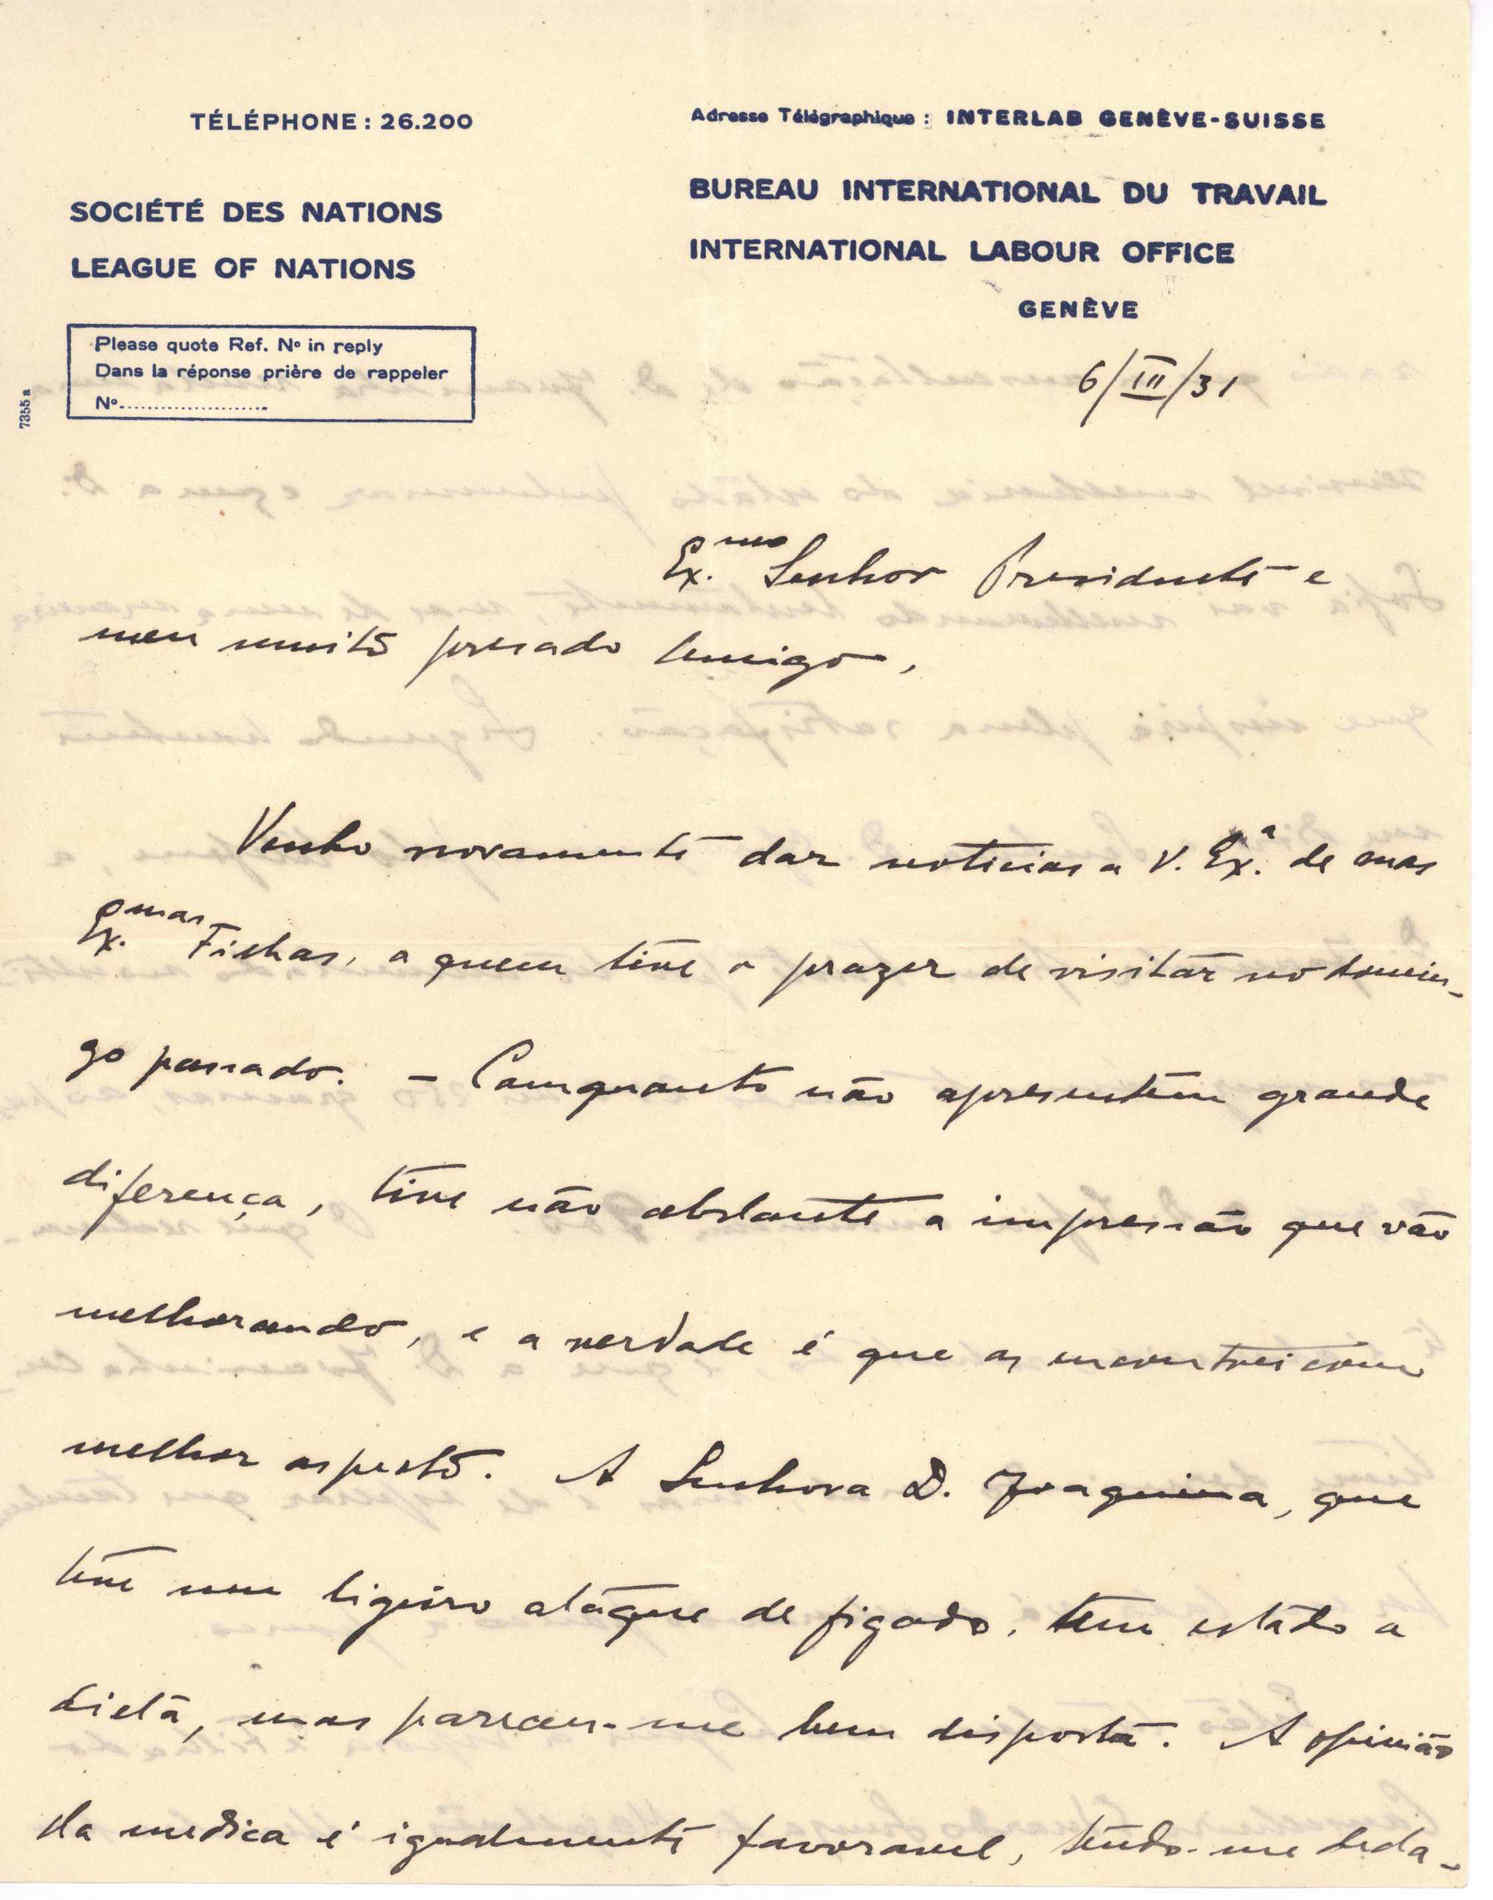 TÉLÉPHONE : 26.200
Adresse Télégraphique : INTERLAB GENÈVE-SUISSE
SOCIÉTÉ DES NATIONS
LEAGUE OF NATIONS
BUREAU INTERNATIONAL DU TRAVAIL
INTERNATIONAL LABOUR OFFICE
GENÈVE
Please quote Ref. Nº in reply
Dans la réponse prière de rappeler
Nº......................
7355 a
6/III/31
Ex.mo Senhor Presidente e
meu muito presado Amigo,
Venho novamente dar noticias a V. Ex.a de suas
Ex.mas Filhas, a quem tive o prazer de visitar no domin-
go passado. - Comquanto não apresentem grande
diferença, tive não obstante a impressão que vão
melhorando, e a verdade é que as encontrei com
melhor aspecto. A Senhora D. Joaquina, que
teve um ligeiro ataque de figado, tem estado a
dieta, mas pareceu-me bem disposta. A opinião
da medica é igualmente favoravel, tendo-me decla-